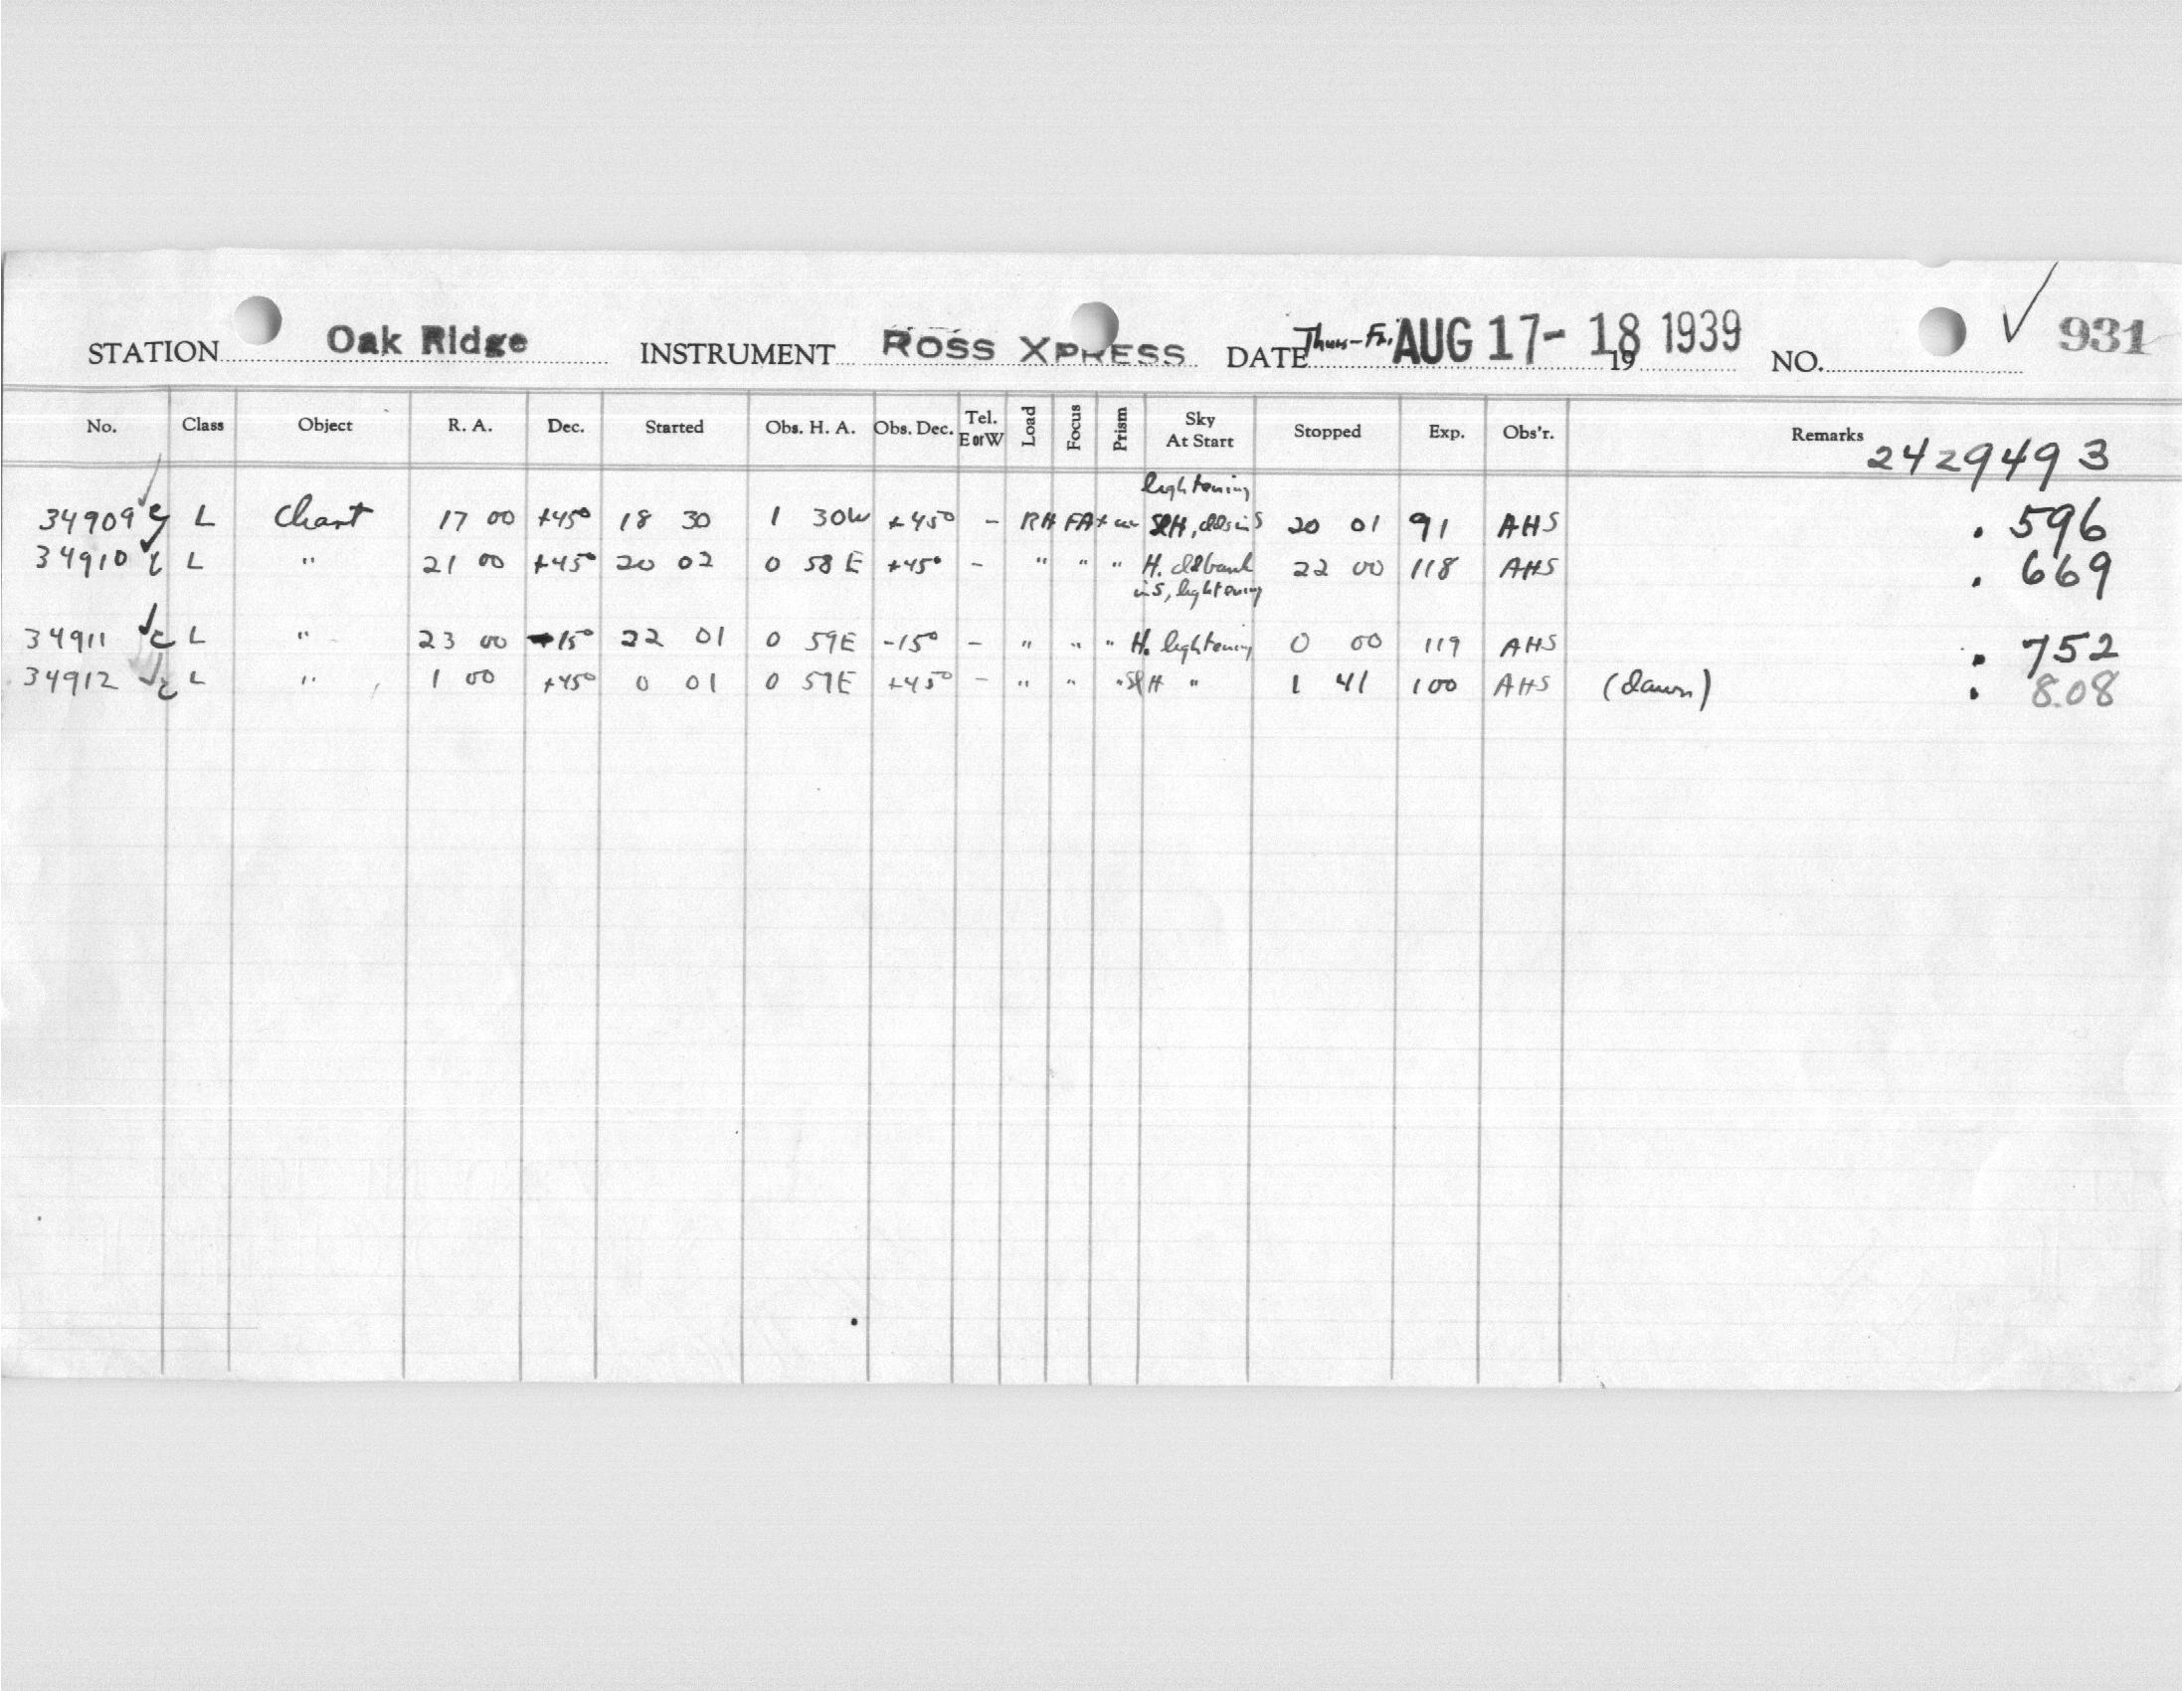 STATION Oak Ridge INSTRUMENT ROSS XPRESS DATE Thurs-Fri. AUG 17- 18 1939 19 NO. 931
No. Class Object R. A. Dec. Started Obs. H. A. Obs. Dec. Tel. E or W Load Focus Prism Sky At Start Stopped Exp. Obs'r. Remarks
2429493
lightening
34909 L Chart 17 00 +45° 18 30 1 30W +45° - RH FA SlH, clds in S 20 01 91 AHS .596
34910 L " 21 00 +45° 20 02 0 58 E +45° - " " " H. cldbank 22 00 118 AHS .669
in S, lightening
34911 L " 23 00 -15° 22 01 0 59E -15° - " " " H. lightening 0 00 119 AHS .752
34912 L " 1 00 +45° 0 01 0 59E +45° - " " " Sl H " 1 41 100 AHS (dawn) .808